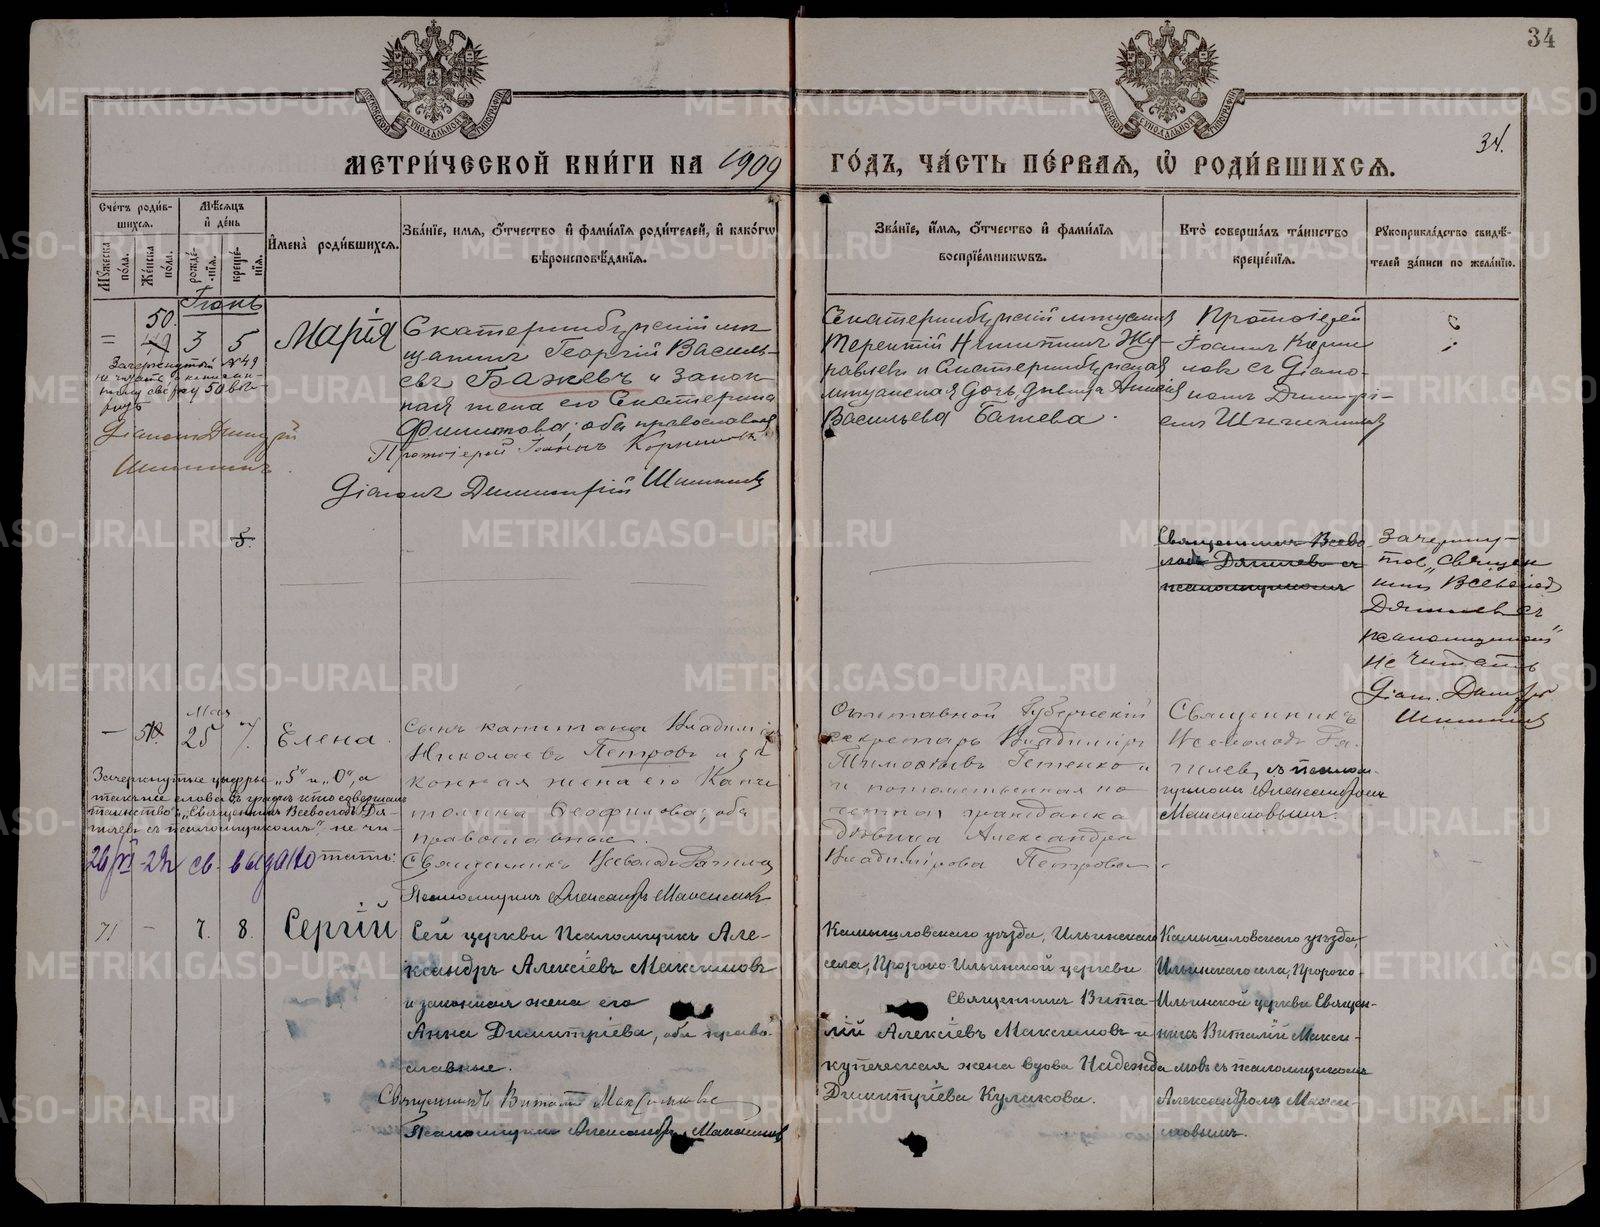 34
34.
МЕТРИ́ЧЕСКОЙ КНИ́ГИ НА 1909 ГО́ДЪ, ЧА́СТЬ ПЕ́РВАЯ, Ѡ҆ РОДИ́ВШИХСЯ.
Сче́тъ роди́в-
шихся.
Мꙋжеска по́ла.
Же́нска по́лꙋ.
Мѣ́сяцъ
и҆ де́нь
рожде́-
нїя.
креще́-
нїя.
И҆мена̀ роди́вшихся.
Зва́нїе, имя, ѻ҆́тчество и҆ фами́лїя роди́телей, и҆ како́гѡ
вѣроисповѣ́данїя.
Зва́нїе, и҆́мя, ѻ҆́тчество и҆ фами́лїя
воспрїе́мникѡвъ.
Кто̀ соверша́лъ та́инство
креще́нїя.
Рꙋкоприкла́дство свидѣ́-
телей за́писи по жела́нїю.
Іюнь
50.
49 3 5
Зачеркнутый №49
не читать, а
50
Діаконъ Димитрій
Шишкинъ.
Марія
Екатеринбургскій мѣ-
щанинъ Георгій Василь-
евъ Бажевъ и закон-
ная жена его Екатерина
Филитова, оба православные
Протоіерей Іоаннъ
Діаконъ Димитрій
Екатеринбургскій мѣщанинъ
Терентій Никитинъ Жу-
равлевъ и Екатеринбургская
мѣщанская дочь, дѣвица
Васильева Бажева.
Протоіерей
Іоаннъ
съ Діако-
номъ Димитрі-
емъ
5.
Священникъ Всево
лодъ съ
псаломщикомъ
Зачеркну-
тое „Священ
никъ Всеволодъ
съ
псаломщикомъ"
не читать
Діак. Димитрій
Мая
25 7.
Елена.
Сынъ капитана Владиміръ
Николаевъ Петровъ и за
конная жена его Капи
толина Феофилова, оба
православные.
Священникъ Всеволодъ
Псаломщикъ Александръ Максимовъ
Отставной Губернскій
секретарь Владиміръ
Тимофѣевъ
и потомственная по
четная гражданка
дѣвица Александра
Владимірова Петрова.
Священникъ
Всеволодъ
съ псалом-
щикомъ Александромъ
Максимовымъ.
Зачеркнутые цыфры „5" и „0", а
также слова въ графѣ кто совершалъ
таинство: „Священникъ Всеволодъ
съ псаломщикомъ", не чи-
тать.
св. выдано
71 — 7. 8.
Сергій
Сей церкви Псаломщикъ Але-
ксандръ Алексіевъ Максимовъ
и законная жена его
Анна Димитріева, оба право-
славные.
Священникъ Виталій Максимовъ
Псаломщикъ Александръ Максимовъ
Камышловскаго уѣзда, Ильинскаго
села, Пророко-Ильинской церкви
Священникъ Вита-
лій Алексіевъ Максимовъ и
купеческая жена вдова Надежда
Димитріева Кулакова.
Камышловскаго уѣзда,
Ильинскаго села, Пророко-
Ильинской церкви Священ-
никъ Виталій Макси-
мовъ съ псаломщикомъ
Александромъ Макси-
мовымъ.
METRIKI.GASO-URAL.RU